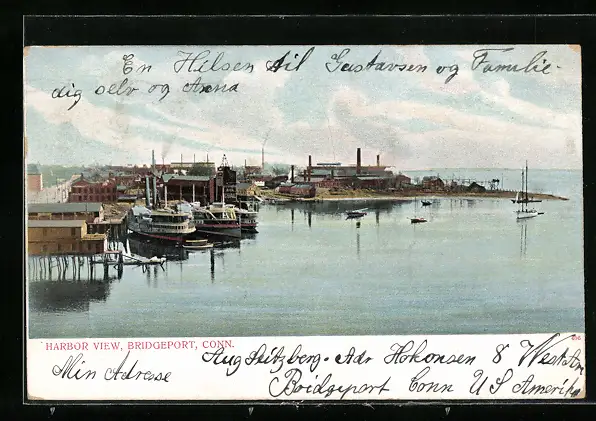 En Hilsen til Gustavsen og Familie.
dig selv og Anna
HARBOR VIEW, BRIDGEPORT, CONN.
Min Adrease Aug Seitzberg. Adr Hokonsen 8 West Av
Bridgeport Conn U S Amerika